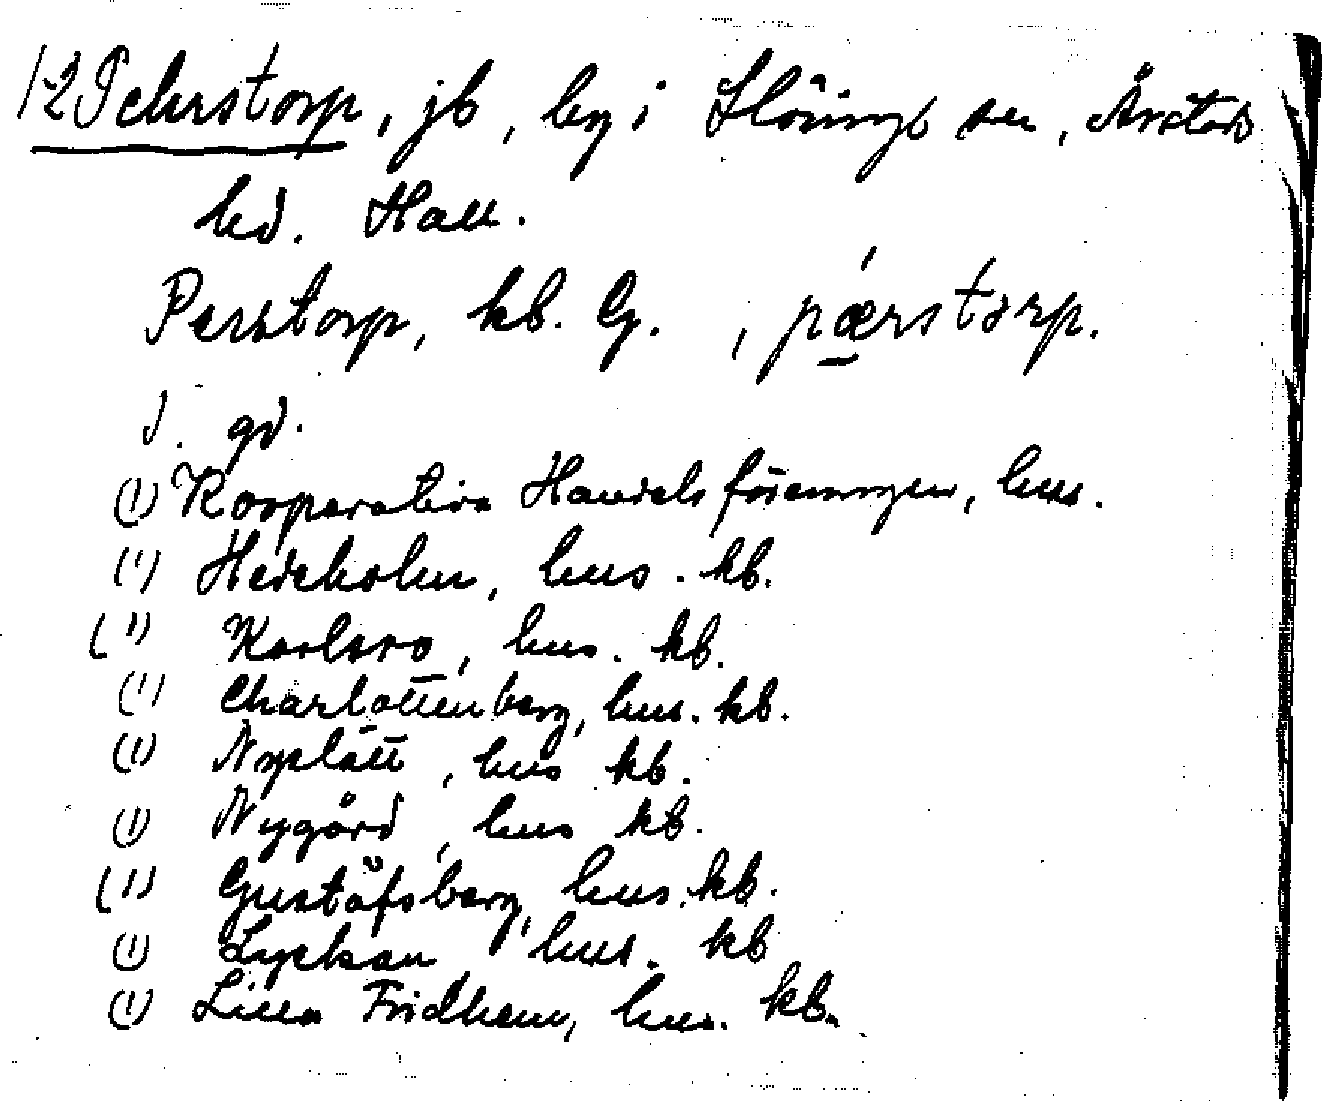 1-2 Pehrstorp, jb, by i Slöinge sn, Årstads
hd. Hall.
Perstorp, kb. G. , pærstorp.
1. gd.
(1) Kooperativa Handelsföreningen, hus.
(1) Hedeholm, hus. kb.
(1) Karlsro, hus. kb.
(1) Charlottenberg, hus. kb.
(1) Nyslätt, hus kb.
(1) Nygård, hus kb.
(1) Gustafsberg, hus. kb.
(1) Lyckan, hus. kb
(1) Lilla Fridhem, hus. kb.